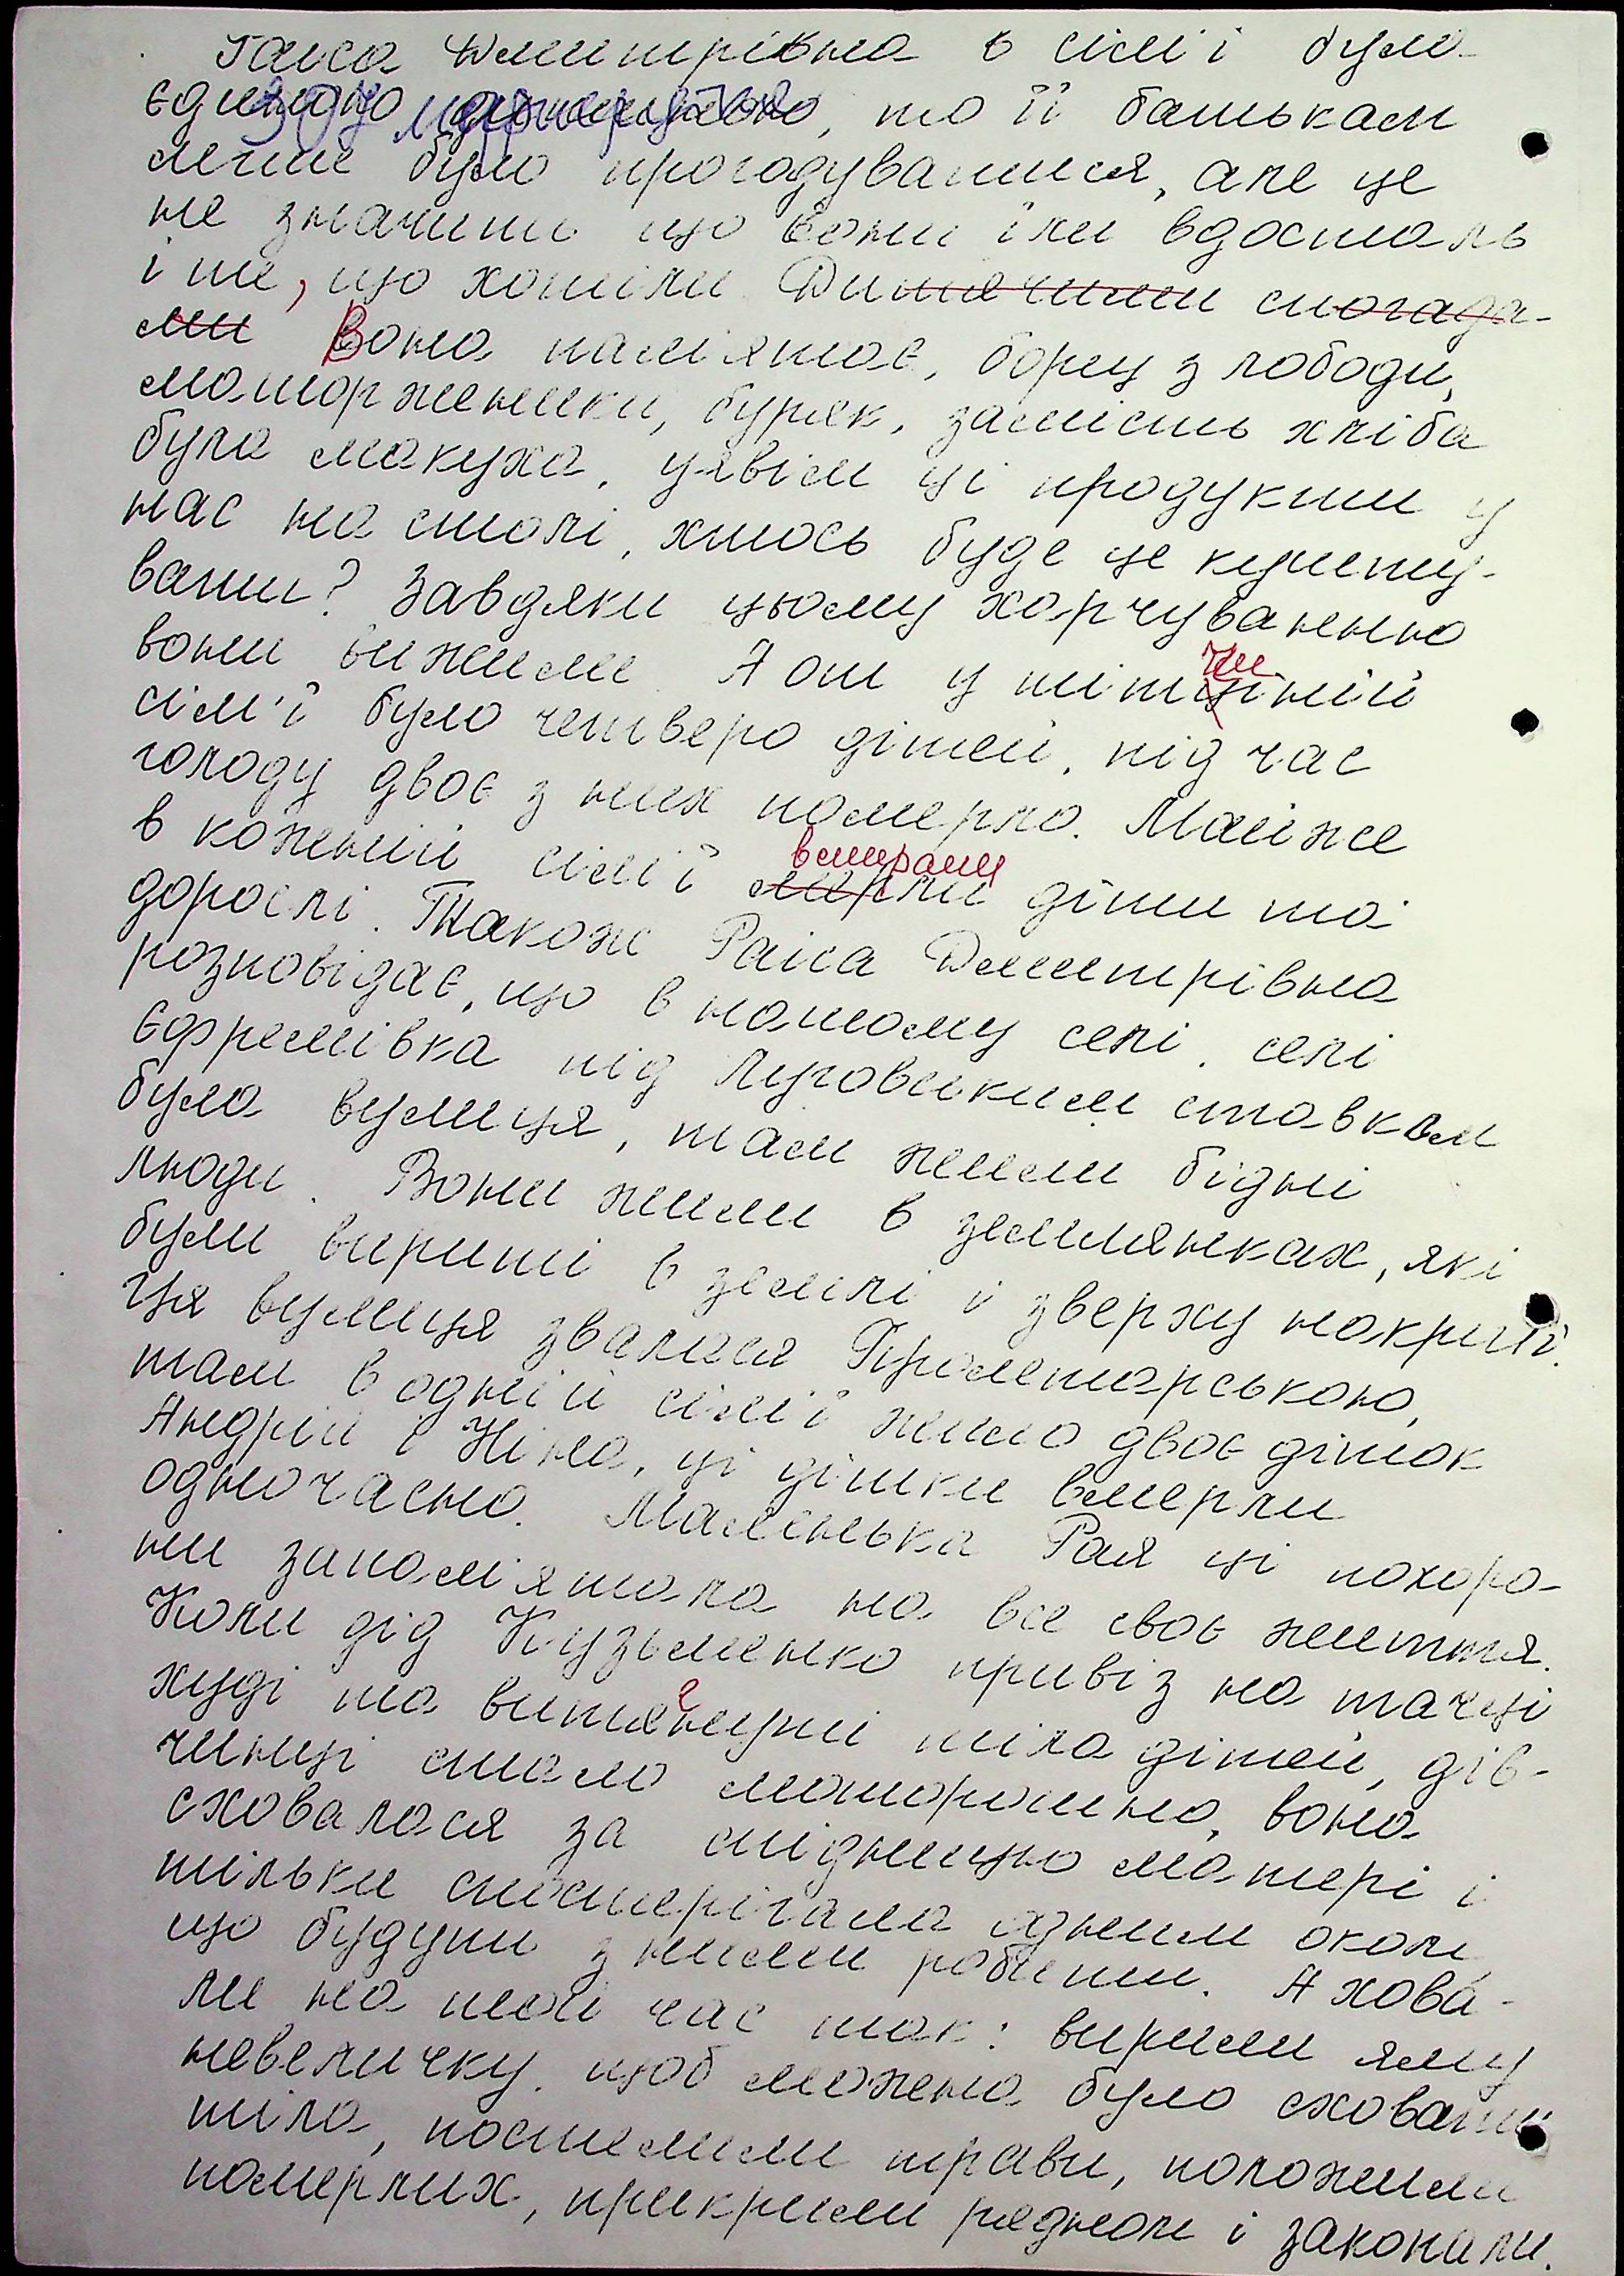 Раїса Дмитрівна в сім'ї була
єдиною, то її батькам
легше було прогодуватися, але це
не значить що вони їли вдосталь
і те, що хотіли. Дитячими спогада-
ми Вона пам'ятає, борщ з лободи,
маторженики, буряк, замість хліба
була макуха, уявім ці продукти у
нас на столі, хтось буде це кушту-
вати? Завдяки цьому харчуванню
вони вижили. А от у тітчиній
сім'ї було четверо дітей, під час
голоду двоє з них померло. Майже
в кожній сім'ї мерли вмирали діти та
дорослі. Також Раїса Дмитрівна
розповідає, що в нашому селі. селі
Єфремівка під Луговським ставком
була вулиця, там жили бідні
люди. Вони жили в землянках, які
були вириті в землі і зверху накриті.
Ця вулиця звалася Пролетарською,
там в одній сім'ї жило двоє діток
Андрій і Ніна, ці дітки вмерли
одночасно. Маленька Рая ці похоро-
ни запам'ятала на все своє життя.
Коли дід Кузьменко привіз на тачці
худі та витягнуті тіла дітей, дів-
чинці стало моторошно, вона
сховалася за спідницю матері і
тільки спостерігала одним оком,
що будуть з ними робити. А хова-
ли на той час так: вирили яму
невеличку. щоб можна було сховати
тіла, постелили трави, положили
померлих, прикрили рядном і закопали.